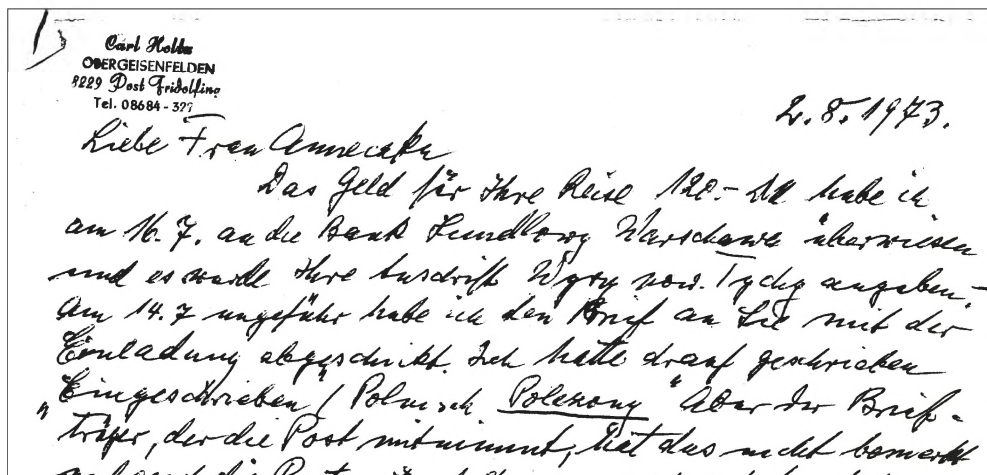 Carl Holtz
OBERGEISENFELDEN
8229 Post Fridolfing
Tel. 08684-327
2.8.1973.
Liebe Frau
Das Geld für Ihre Reise 120.- DM habe ich
am 16.7. an die Bank Handlowy Warschawa überwiesen
und es wurde Ihre Anschrift Wyry pow. Tychy angeben.-
Am 14.7 ungefähr habe ich den Brief an Sie mit der
Einladung abgeschickt. Ich hatte drauf geschrieben
„Eingeschrieben" / Polnisch Polecony" Aber der Brief-
träger, der die Post mitnimmt, hat das nicht bemerkt